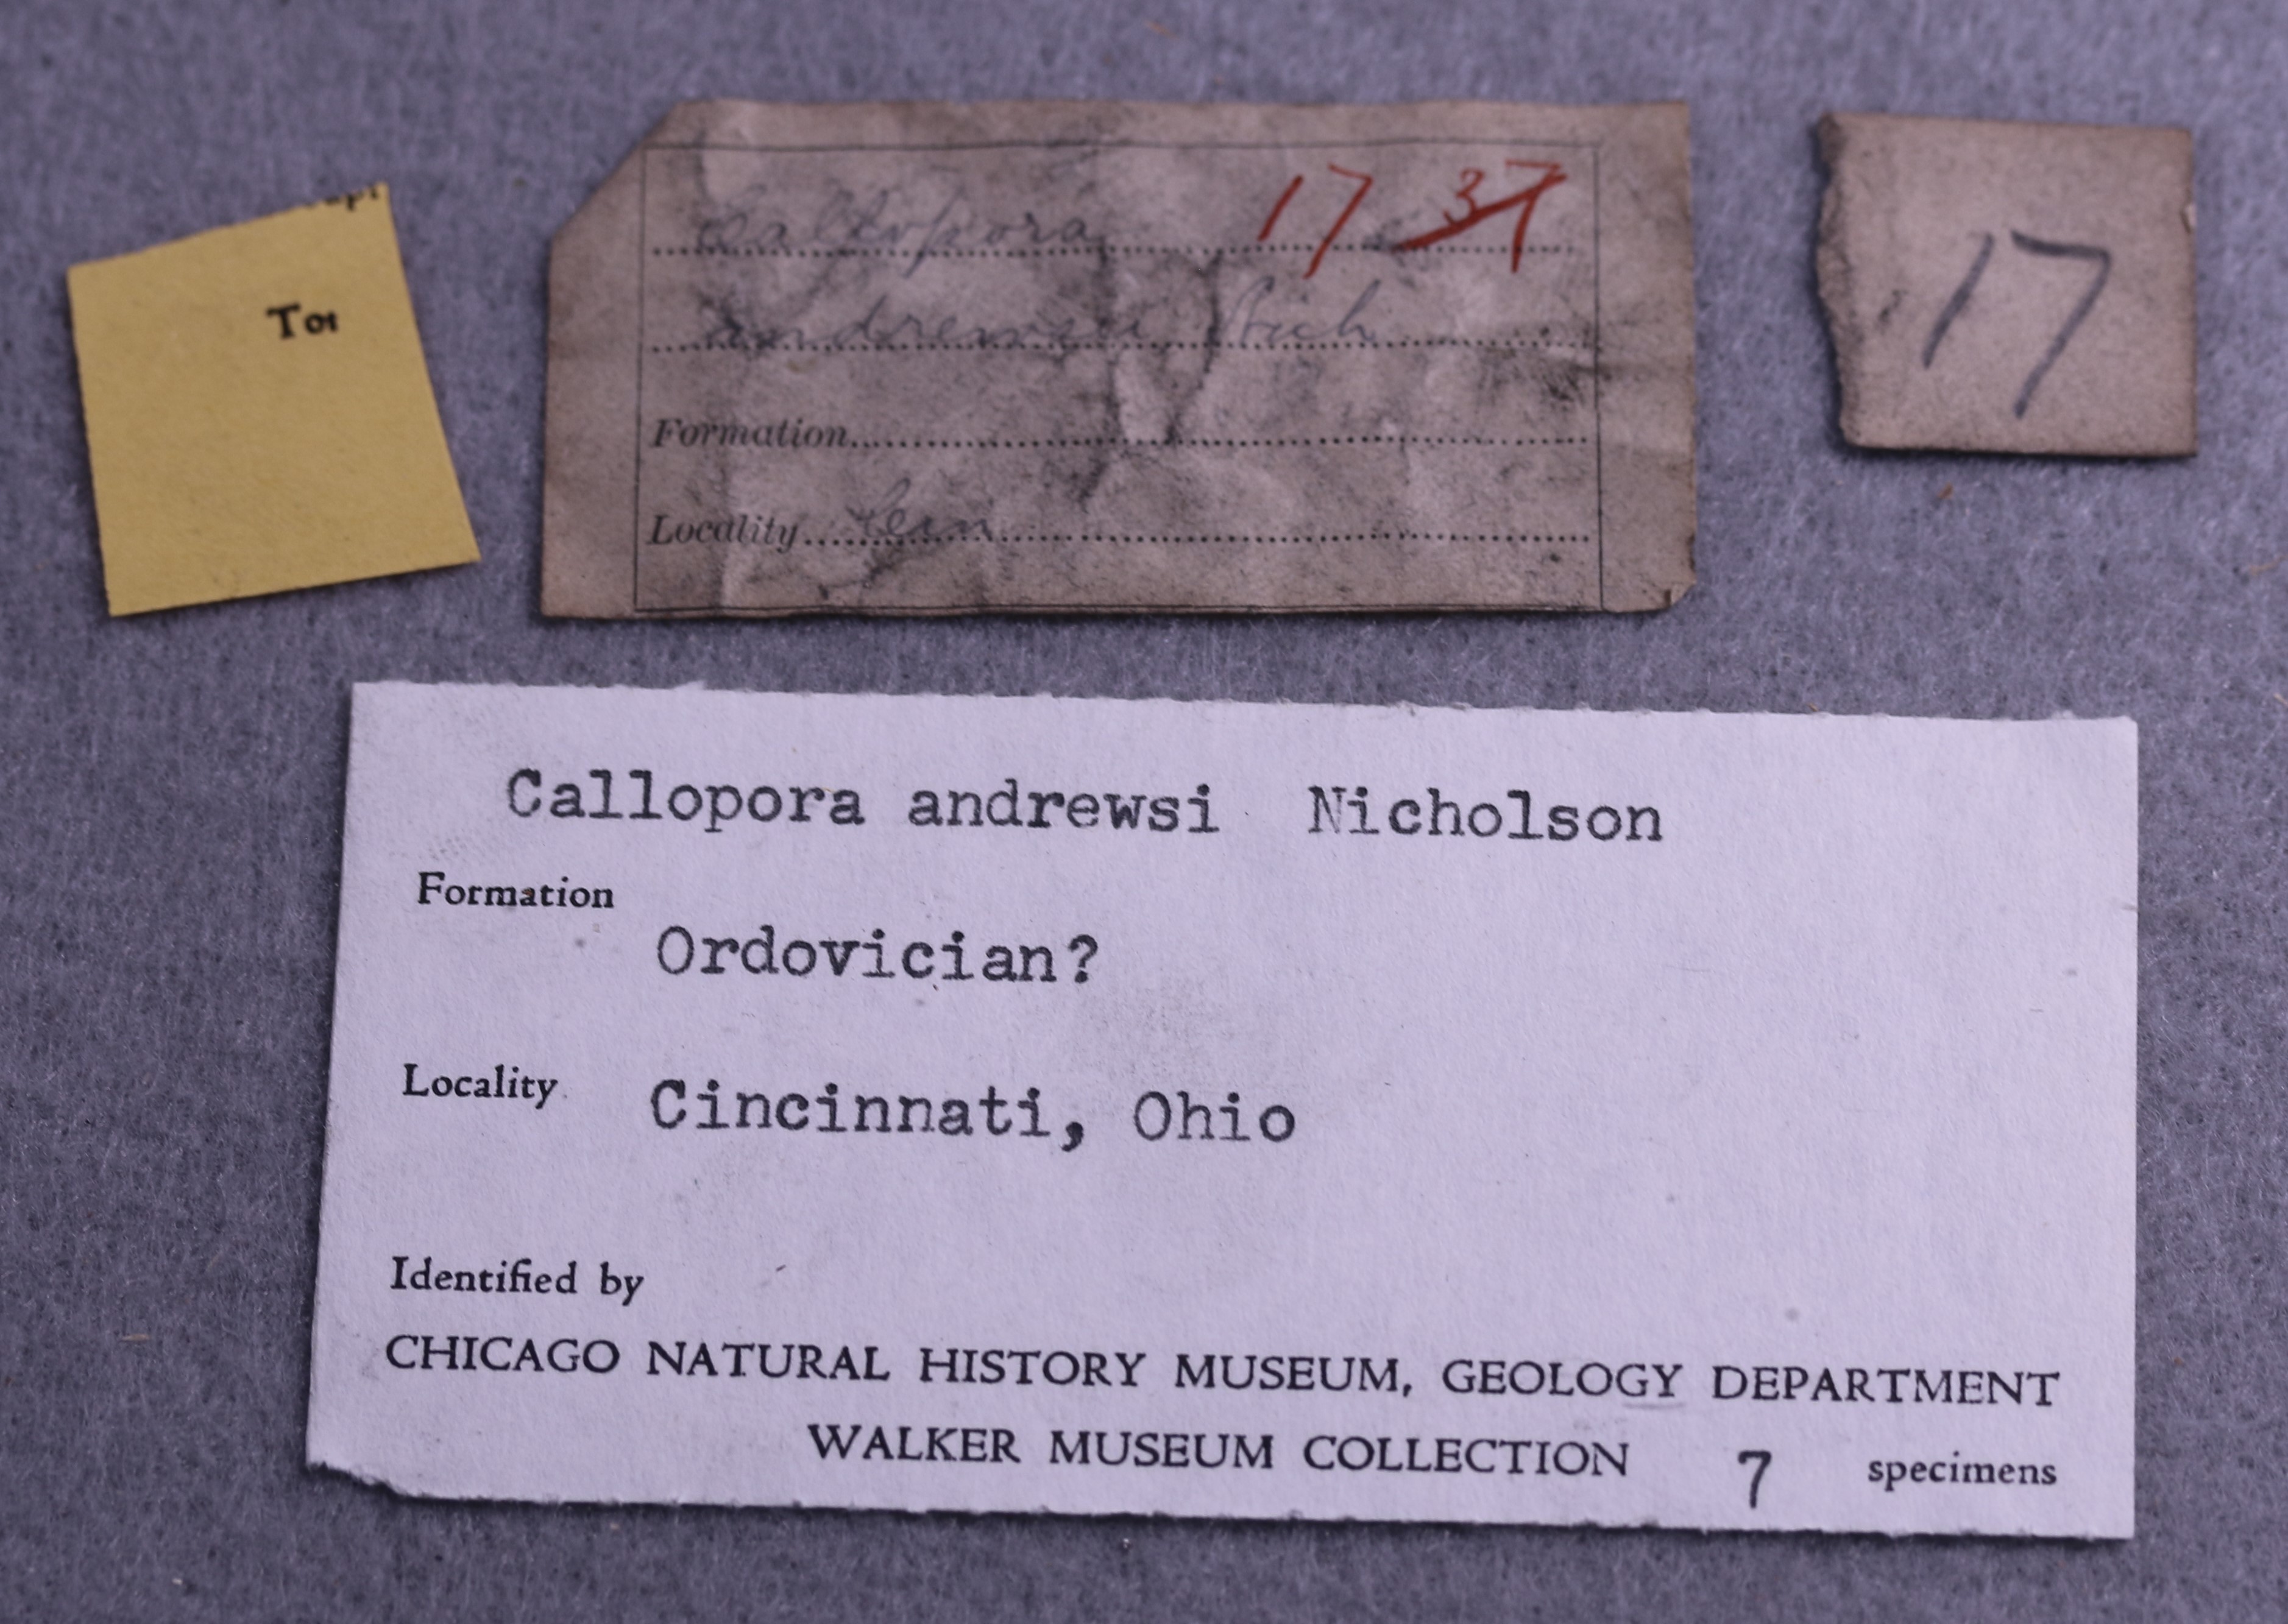 Callopora 17 37
andrewsii Nich
Formation
Locality Cin
17
Callopora andrewsi Nicholson
Formation
Ordovician?
Locality
Cincinnati, Ohio
Identified by
CHICAGO NATURAL HISTORY MUSEUM, GEOLOGY DEPARTMENT
WALKER MUSEUM COLLECTION 7 specimens